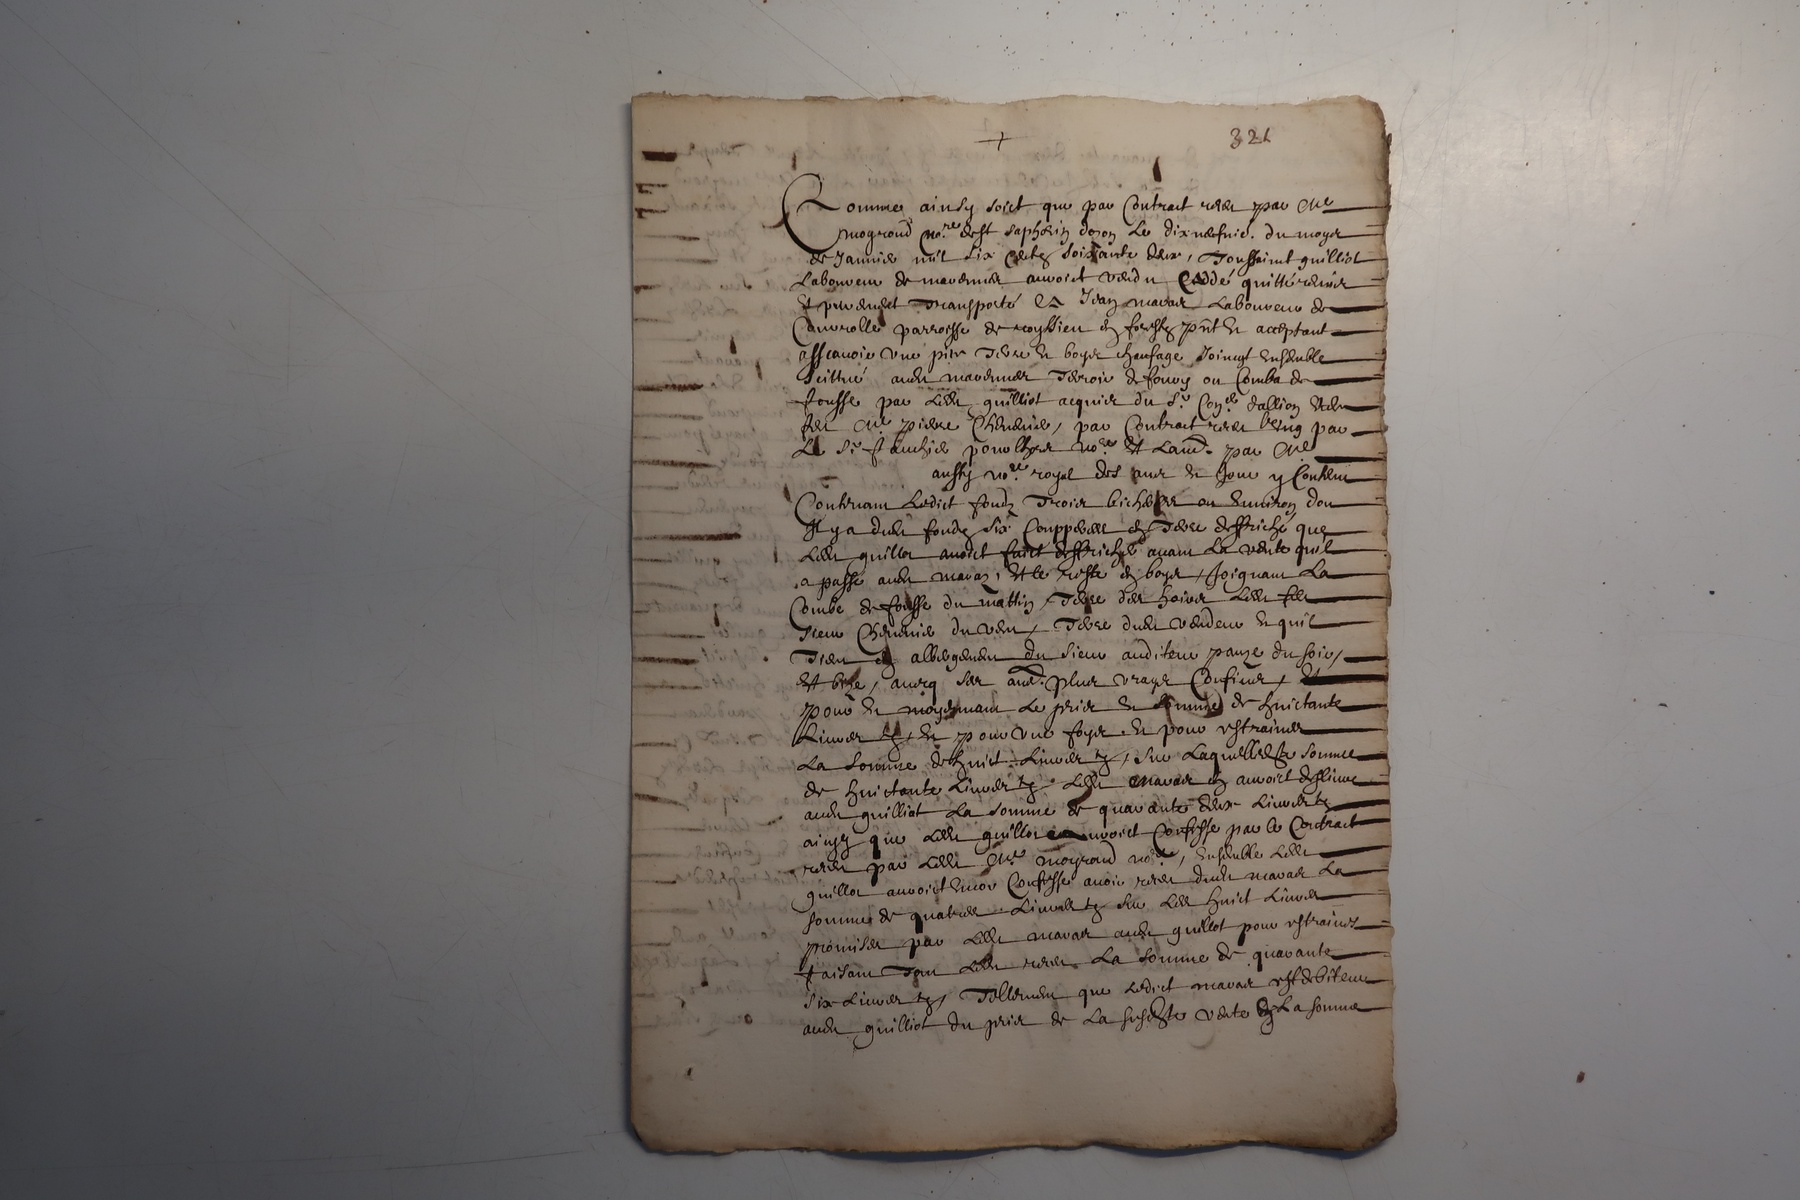 + 321
Comme ainsy soict que par Contract receu par Me
mogrond nore de st saphorin dozon Le dixneufvie. du moys
de Janvier mil six centz soixante deux, Toussainct guilliot
Laboureur de mavernier auroict vendu Ceddé quitté remis
Et purement Transporté A Jean mavas Laboureur de
parroisse de en forestz pnt Et acceptant
assavoir une piece Terre et boys chaufage Joinct Ensemble
scittué audt Terroir de ou Comba de
fousse par Ledt guilliot acquis du Sr Conser dallion
feu Me pierre Chernevier, par Contract receu par
Le Sr nore Et Laud. par Me
aussy nore royal des an et Jour y Contenu
Contenant Ledict fondz Trois bicherees ou Environ dou
Il y a dudt fondz six Coupperees en Terre deffriché que
Ledt guillot auroict faict deffricher avant La vente quil
a passé audt mavas, Et le reste en boys, Joignant La
Combe de fousse du mattin, Terre des hoirs dudt feu
sieur Chernevier du vent, Terre dudt vendeur et quil
Tient en albergement du sieur auditeur du soir,
Et bize, avecq ses aud. plus vrayes Confines, Et
pour Et moyennant Le prix Et somme de huictante
Livres tz, Et pour une foys Et pour estraines
La somme de huict Livres tz, sur Laquelle somme
de huictante Livres tz Ledt mavas en auroict deslivré
audt guilliot La somme de quarante deux Livres tz
ainsy que Ledt guillot auroict Confessé par le Contract
receu par Ledt Me mogrond nore, Ensemble Ledt
guillot auroict Encor Confessé avoir receu dudt mavas La
somme de quatre Livres tz sur Les huict Livres
promises par Ledt mavas audt guillot pour estraines
faisant Tout Ledt receu La somme de quarante
six Livres tz, Tellement que Ledict mavas est debiteur
audt guilliot du prix de La susdte vente En La somme